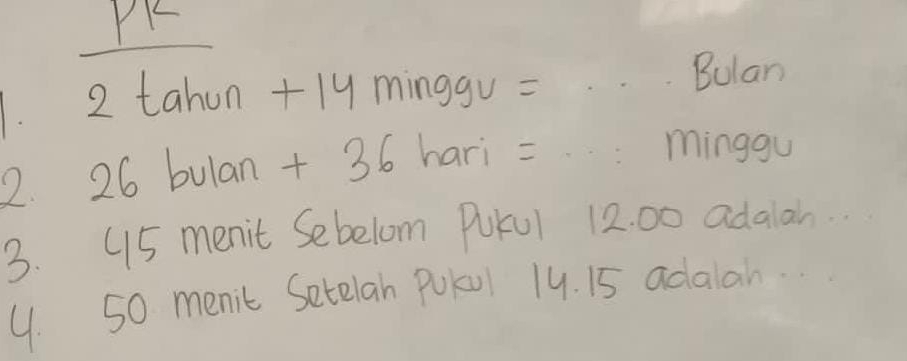 PR
1. 2 tahun + 14 minggu = ... Bulan
2. 26 bulan + 36 hari = ... minggu
3. 45 menit Sebelum Pukul 12.00 adalah ...
4. 50 menit Setelah Pukul 14.15 adalah ...